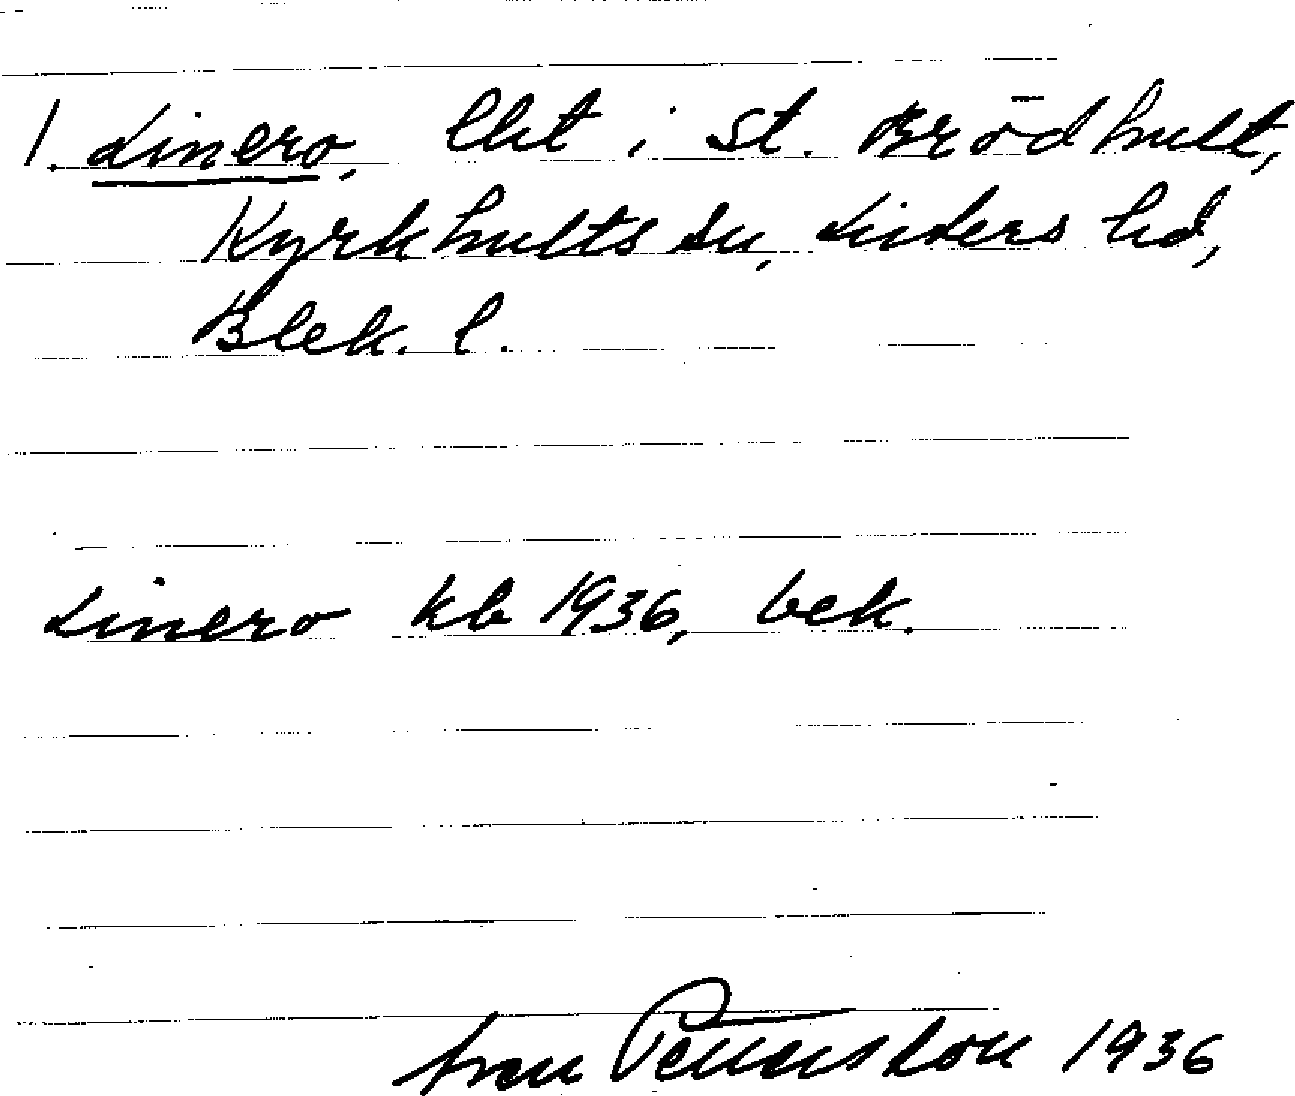 1. Linero, lht i St. Brödhult,
Kyrkhults sn, Listers hd,
Blek. l.
Linero kb 1936, bek.
Sven Petersson 1936